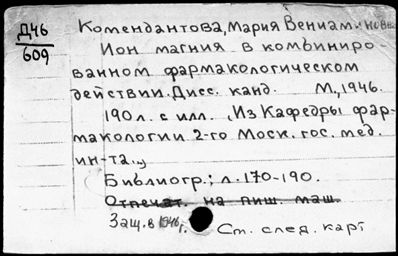 Д46
609
Комендантова, Мария Вениаминовна
Ион магния в комбиниро-
ванном фармакологическом
действии. Дисс. канд. М., 1946.
190 л. с илл. (Из Кафедры фар-
макологии 2-го Моск. гос. мед.
ин-та.)
Библиогр.; л. 170-190.
Отпечат. на пиш. маш.
Защ. в 1946 г.
См. след. карт